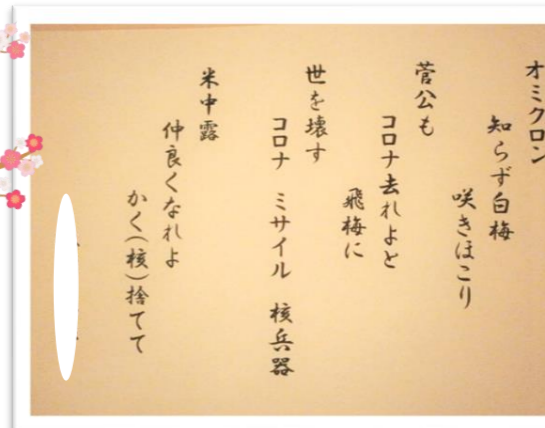 オミクロン
知らず白梅
咲きほこり
菅公も
コロナ去れよと
飛梅に
世を壊す
コロナ ミサイル 核兵器
米中露
仲良くなれよ
かく(核)捨てて